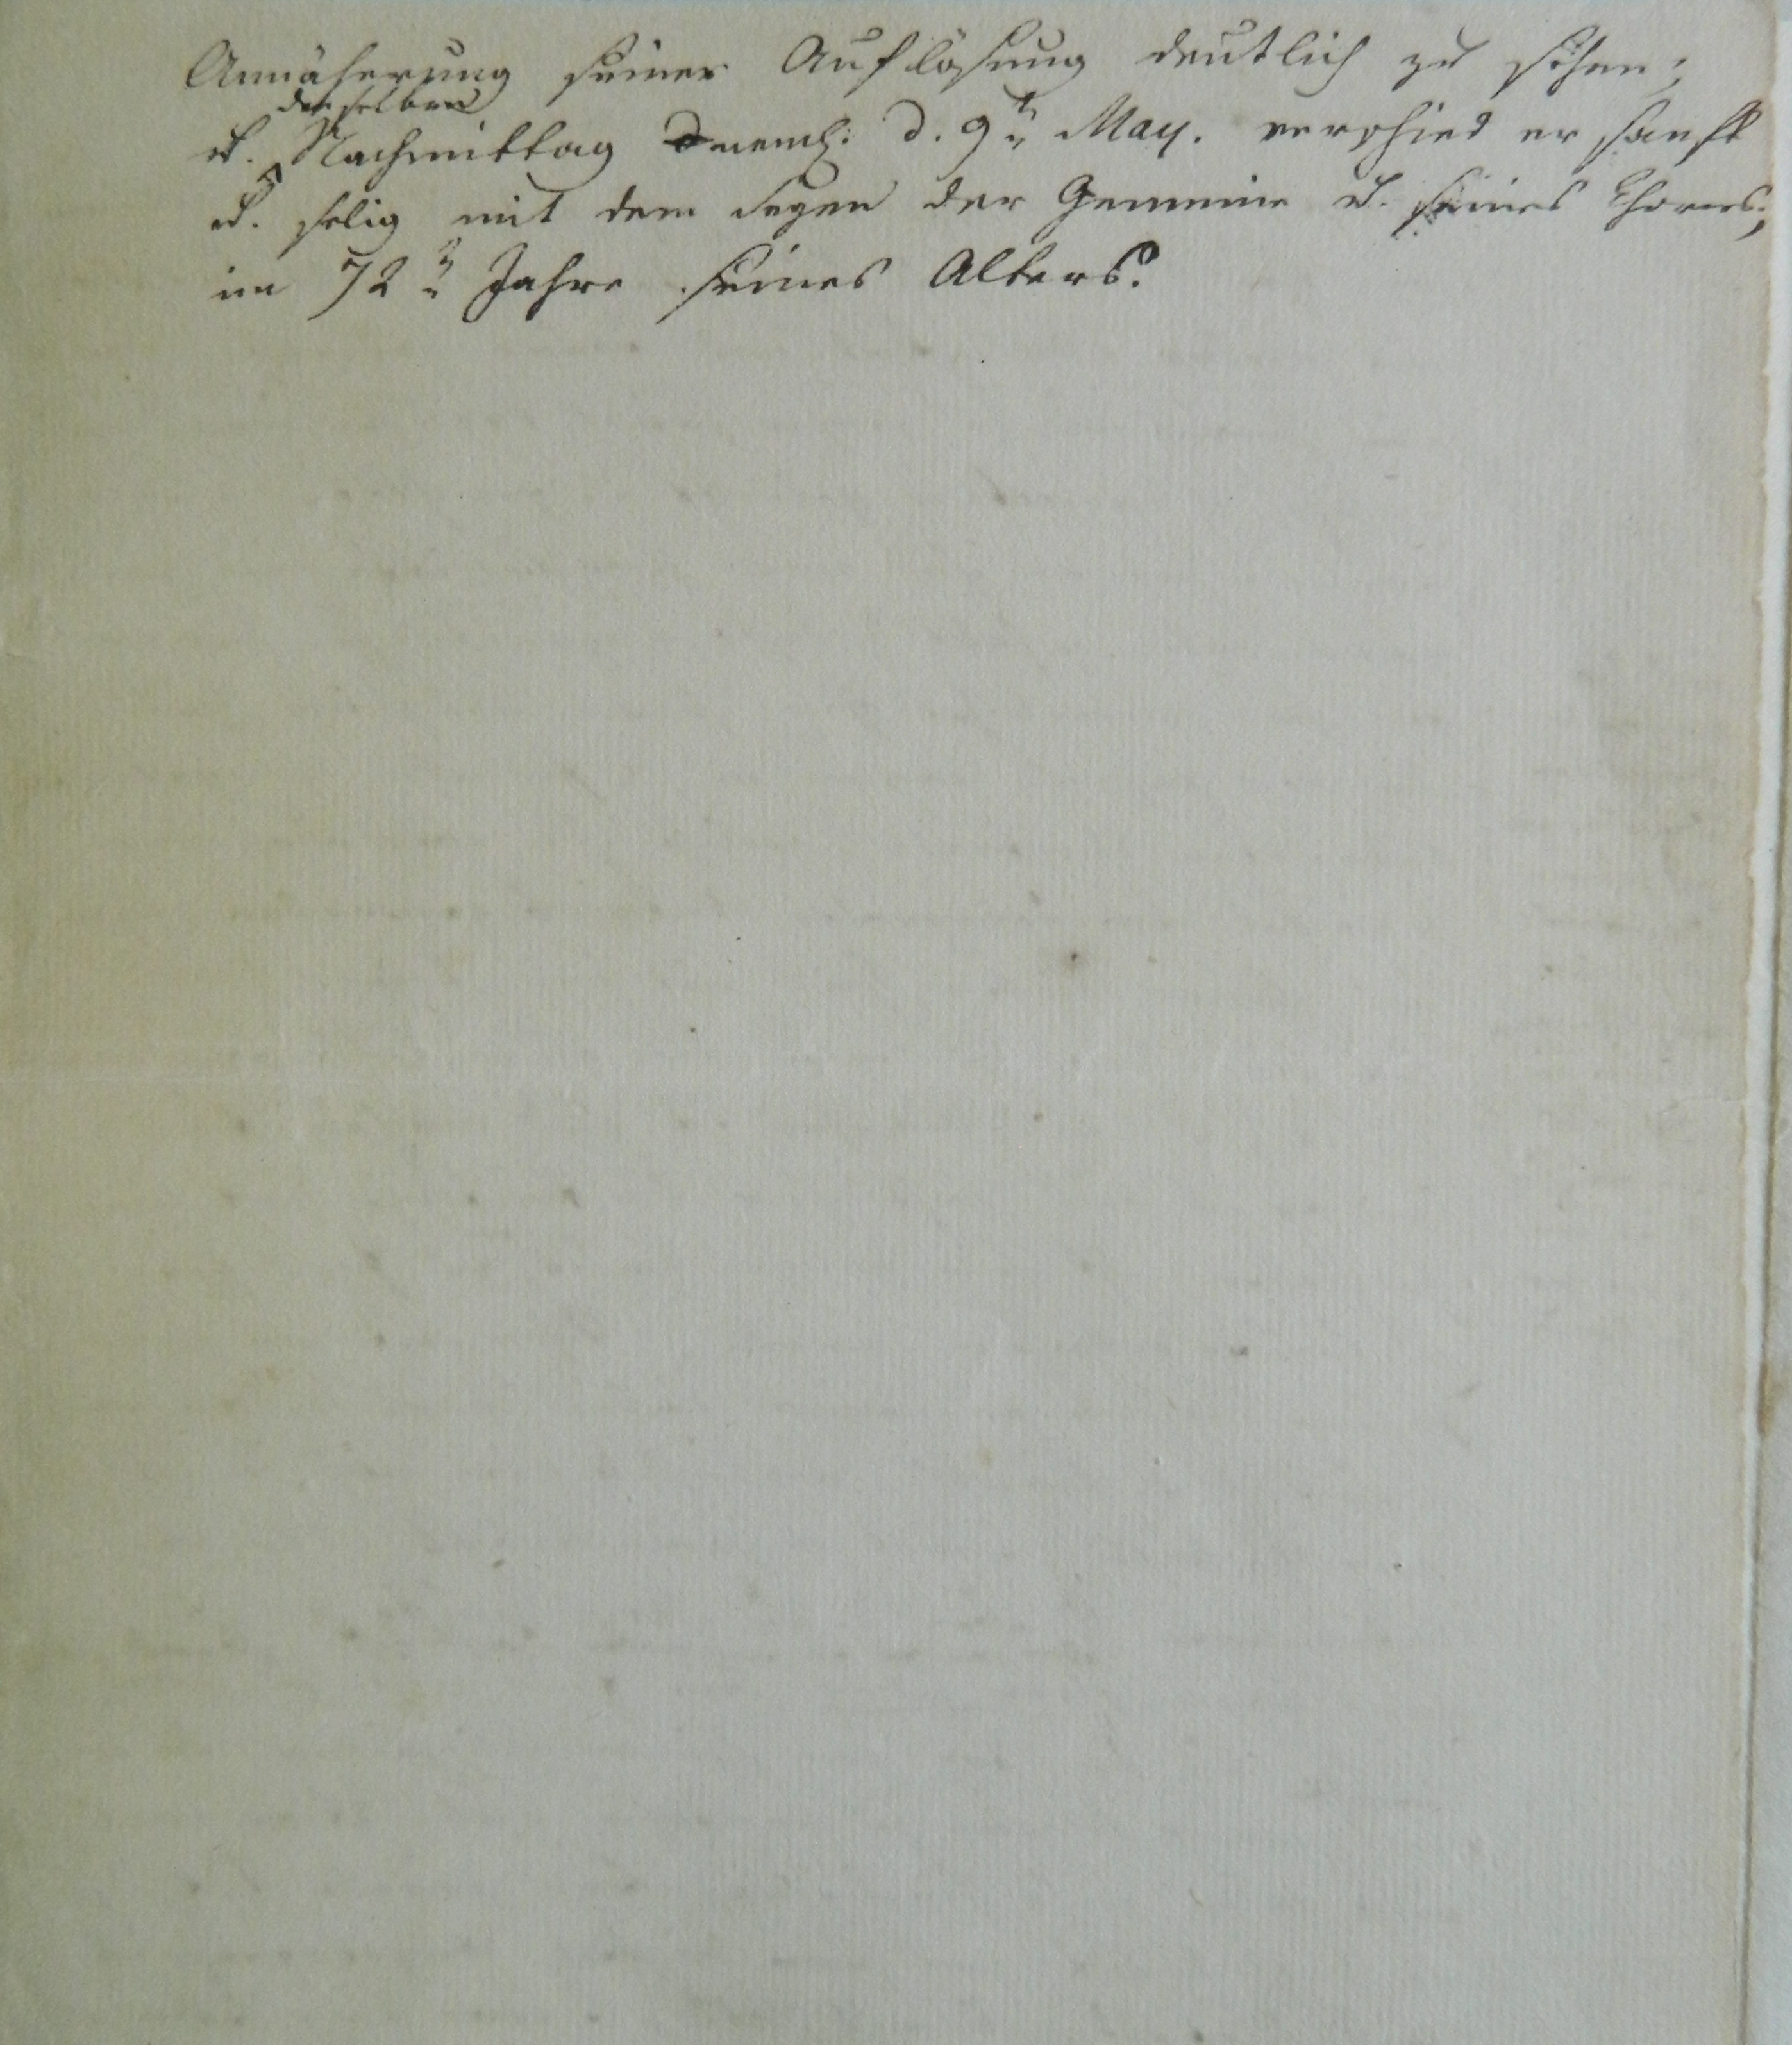 Annäherung seiner Auflösung deutlich zu sehen;
denselben
u. Nachmittag neml: d. 9t May. verschied er sanft
u. selig mit dem Segen der Gemeine u. seines Chores;
im 72t Jahre seines Alters.